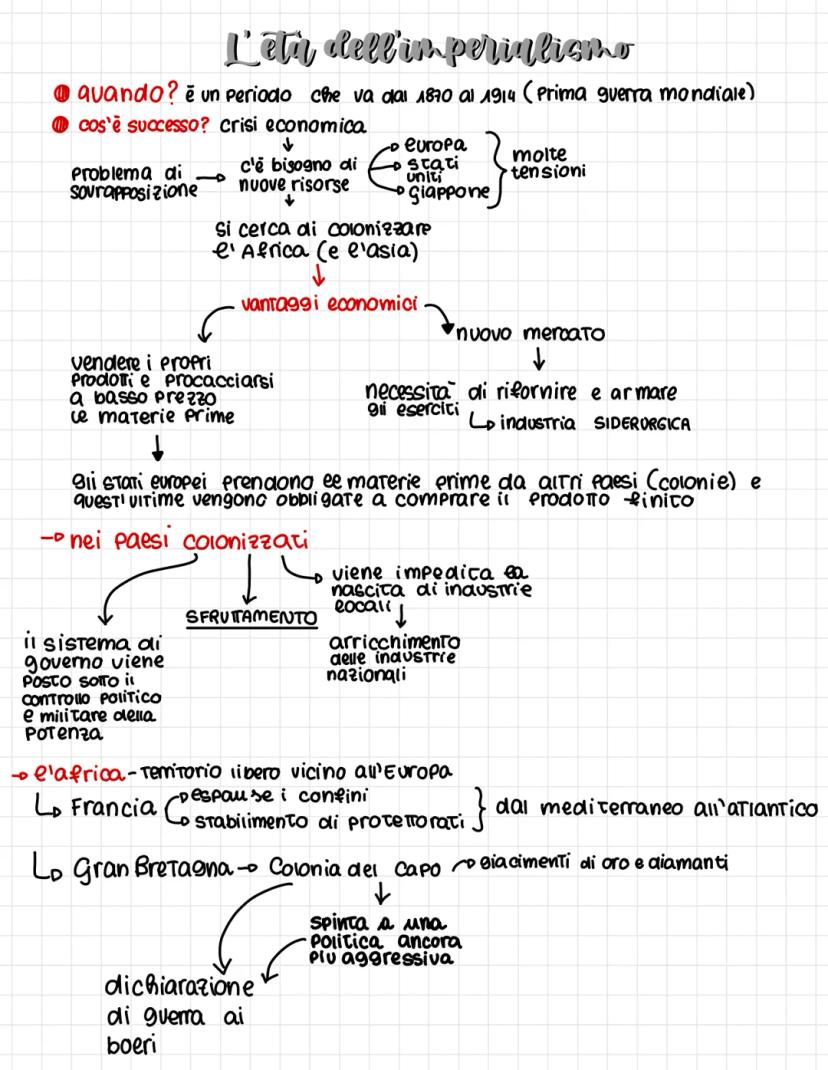 L'età dell'imperialismo
quando? è un periodo che va dal 1870 al 1914 (Prima guerra mondiale)
cos'è successo? crisi economica
problema di
sovrapposizione
c'è bisogno di
nuove risorse
europa
stati
uniti
giappone
molte
tensioni
si cerca di colonizzare
l'Africa (e l'asia)
vantaggi economici
nuovo mercato
vendere i propri
prodotti e procacciarsi
a basso prezzo
le materie prime
necessità di rifornire e armare
gli eserciti
industria SIDERURGICA
gli stati europei prendono le materie prime da altri paesi (colonie) e
quest'ultime vengono obbligate a comprare il prodotto finito
nei paesi colonizzati
viene impedita la
nascita di industrie
locali
SFRUTTAMENTO
il sistema di
governo viene
posto sotto il
controllo politico
e militare della
potenza
arricchimento
delle industrie
nazionali
l'africa - territorio libero vicino all'Europa
Francia
espanse i confini
stabilimento di protettorati
dal mediterraneo all'atlantico
Gran Bretagna Colonia del Capo giacimenti di oro e diamanti
spinta a una
politica ancora
più aggressiva
dichiarazione
di guerra ai
boeri